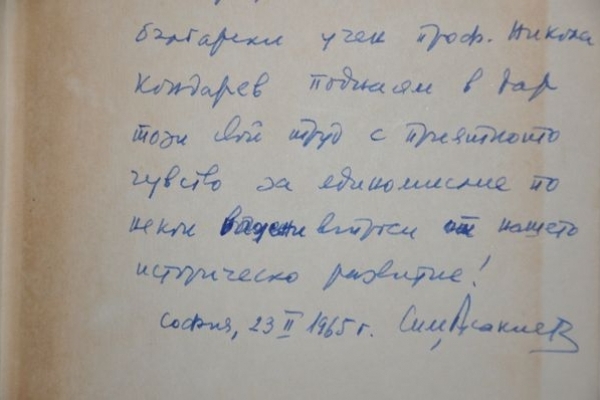 български учен проф. Никола
Кондарев поднасям в дар
този мой труд с приятното
чувство за единомислие по
некои важни въпроси от нашето
историческо развитие!
София, 23 II 1965 г. Сим.